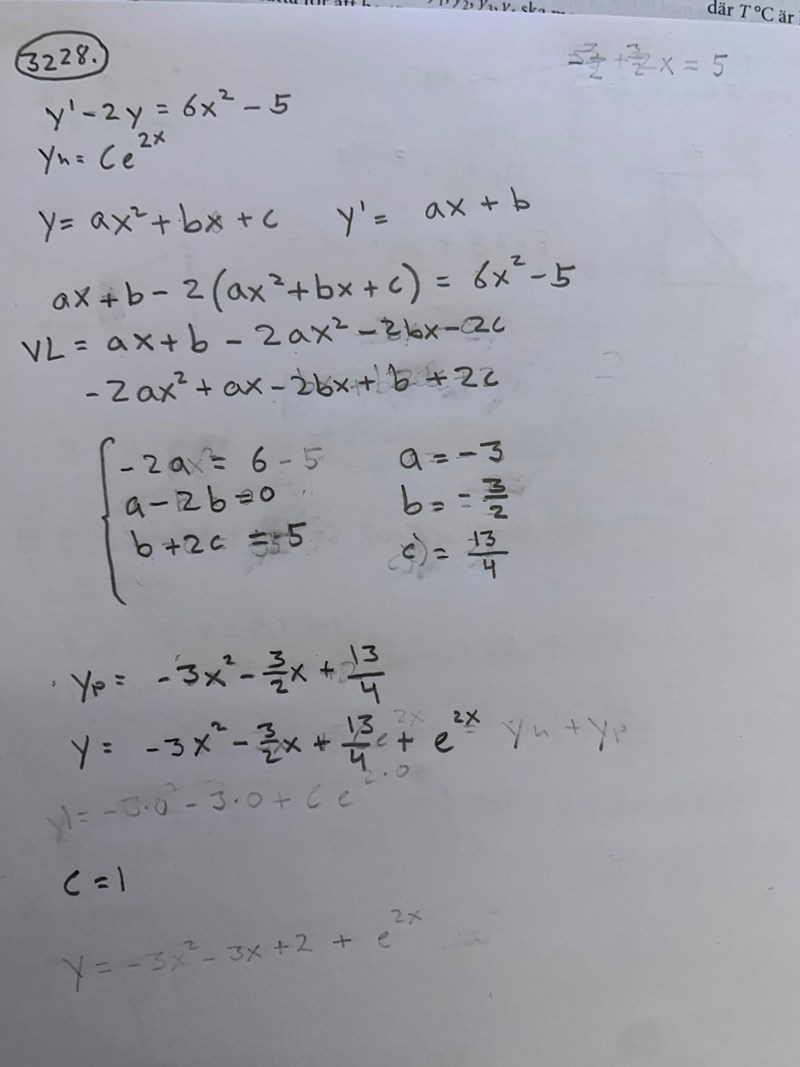 där T °C är
3228.
y' - 2y = 6x² - 5
yh = Ce^2x
y = ax² + bx + c y' = ax + b
ax + b - 2(ax² + bx + c) = 6x² - 5
VL = ax + b - 2ax² - 2bx - 2c
- 2ax² + ax - 2bx + b + 2c
- 2ax² = 6 - 5 a = -3
a - 2b = 0 b = - 3/2
b + 2c = 5 c = 13/4
yp = -3x² - 3/2x + 13/4
y = -3x² - 3/2x + 13/4 + e^2x yh + yp
y = -3·0² - 3·0 + Ce^2·0
c = 1
y = -3x² - 3x + 2 + e^2x